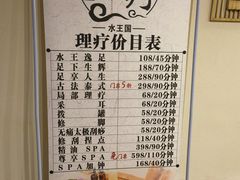 水王国
理疗价目表
水王逸足 108/45分钟
足下生辉 188/70分钟
足享人生 288/90分钟
古法泰式 298/90分钟
局部理疗 68/20分钟
采耳 68/20分钟
拔罐 58/20分钟
修脚 58/20分钟
无痛太极刮痧 58/20分钟
修刮捏点 118/40分钟
精油SPA 398/90分钟
尊享SPA 598/110分钟
SPA加钟 168/40分钟